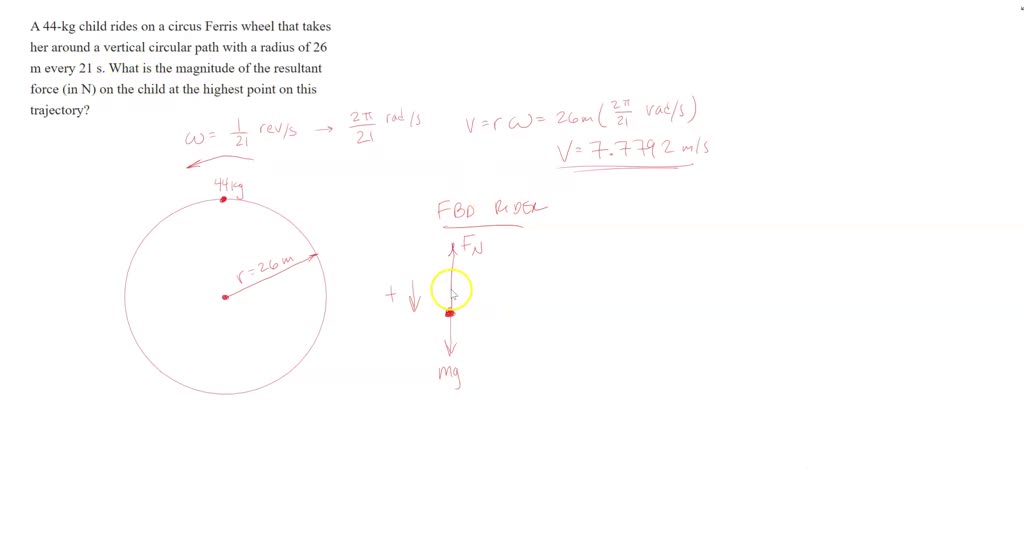 A 44-kg child rides on a circus Ferris wheel that takes
her around a vertical circular path with a radius of 26
m every 21 s. What is the magnitude of the resultant
force (in N) on the child at the highest point on this
trajectory?
ω = 1/21 rev/s → 2π/21 rad/s
V = r ω = 26m ( 2π/21 rad/s )
V = 7.7792 m/s
44kg
r = 26 m
FBD RIDER
FN
+ ↓
mg